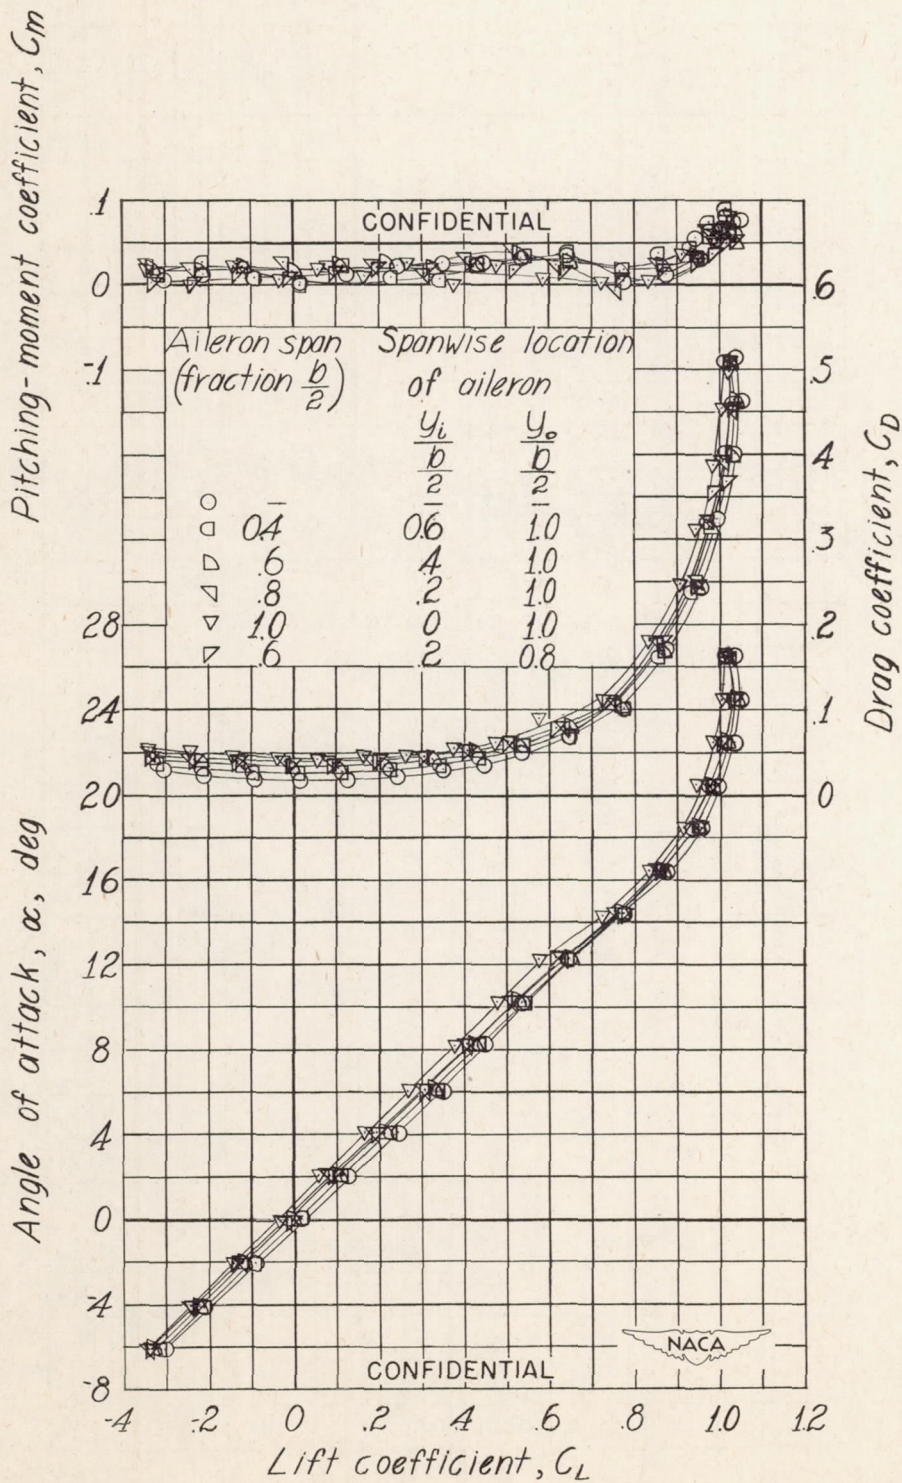 Pitching-moment coefficient, Cm
.1
CONFIDENTIAL
0
.6
-.1
.5
Aileron span Spanwise location
(fraction b/2) of aileron
yi/b/2 yo/b/2
– – –
0.4 0.6 1.0
.6 .4 1.0
.8 .2 1.0
1.0 0 1.0
.6 .2 0.8
.4
.3
.2
.1
0
Drag coefficient, CD
28
24
20
16
12
8
4
0
-4
-8
Angle of attack, α, deg
NACA
CONFIDENTIAL
-.4 -.2 0 .2 .4 .6 .8 1.0 1.2
Lift coefficient, CL